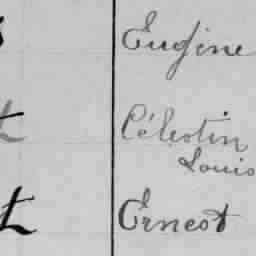 Eugine
Célestin
Louis
Ernest